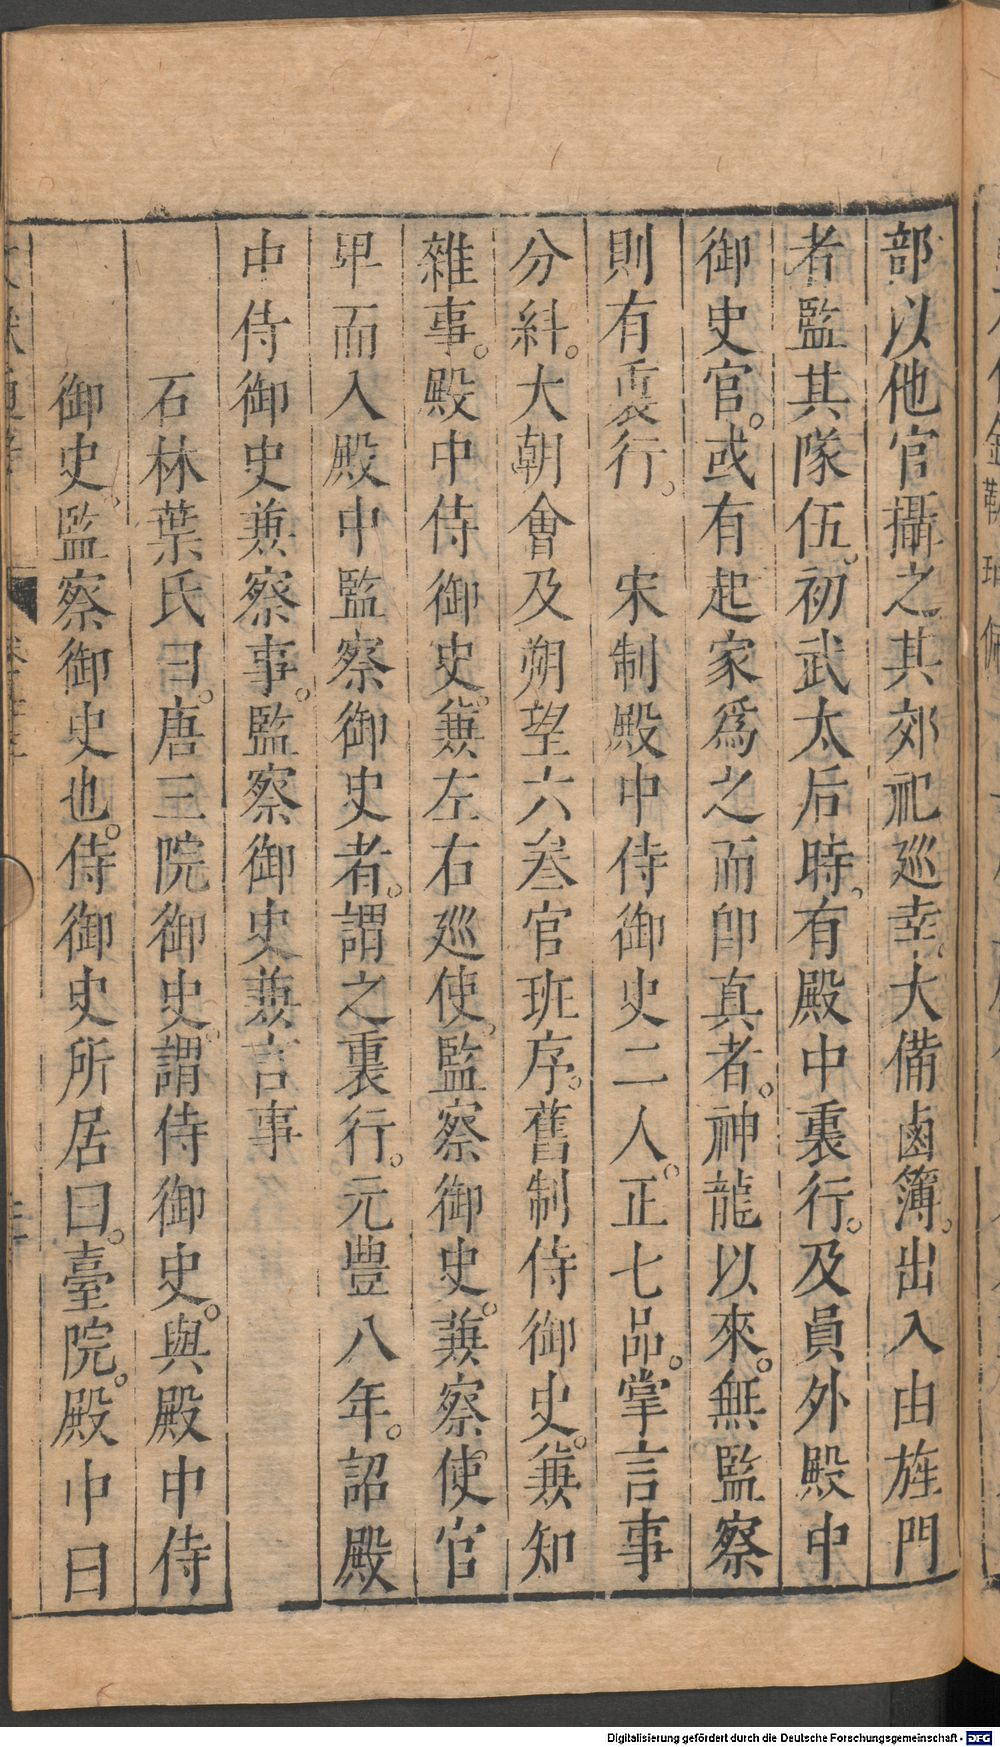 部以他官攝之其郊祀巡幸大備鹵簿。出入由旌門
者監其隊伍。初武太后時。有殿中裏行。及員外殿中
御史官。或有起家爲之而卽真者。神龍以來。無監察
則有裏行。　宋制殿中侍御史二人。正七品。掌言事
分糾。大朝會及朔望六叅官班序。舊制侍御史。兼知
雜事。殿中侍御史。兼左右巡使。監察御史。兼察使官
卑而入殿中監察御史者。謂之裏行。元豐八年。詔殿
中侍御史兼察事。監察御史兼言事
石林葉氏曰。唐三院御史。謂侍御史。與殿中侍
御史。監察御史也。侍御史所居曰。臺院。殿中曰
Digitalisierung gefördert durch die Deutsche Forschungsgemeinschaft - DFG